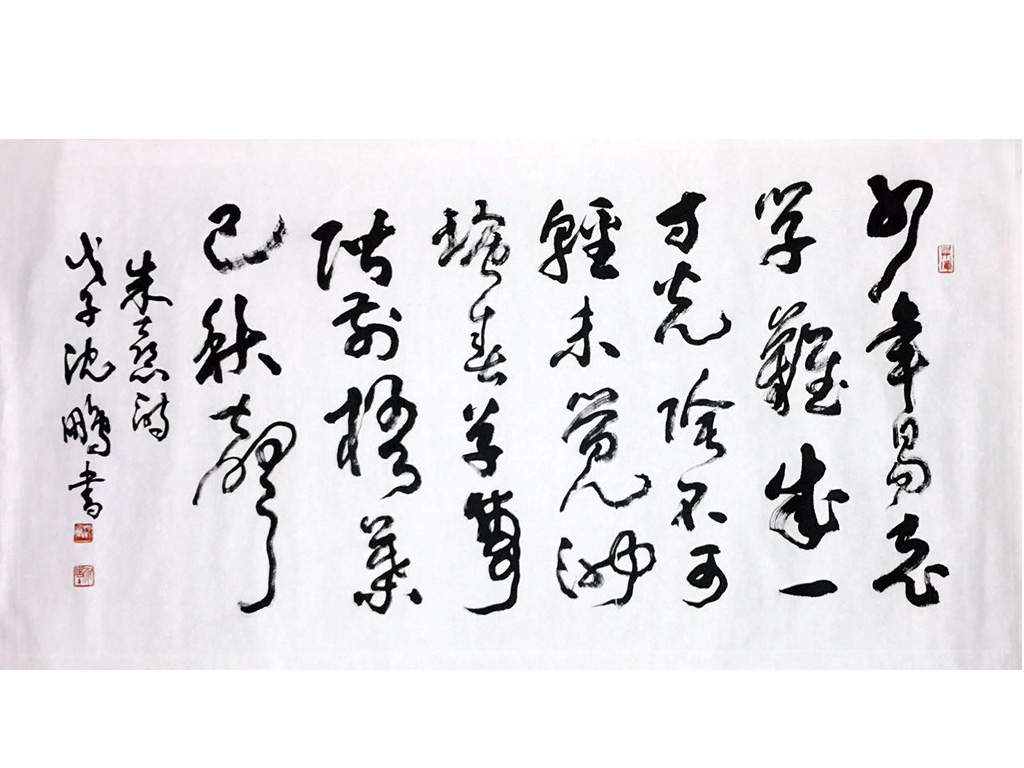 少年易老
学難成一
寸光陰不可
輕未覺池
塘春草夢
階前梧葉
已秋聲
朱熹詩
戊子沈鵬書